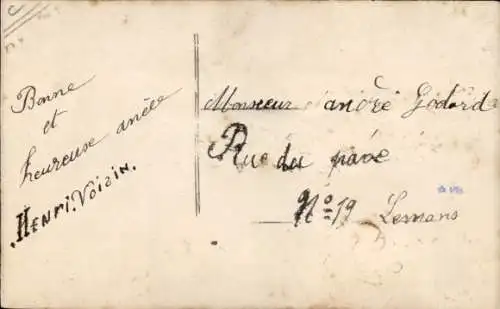 Bonne
et
heureuse anèe
Henri. Voisin.
Monsieur andré Godard
Rue du pavé
No 19 Lemans